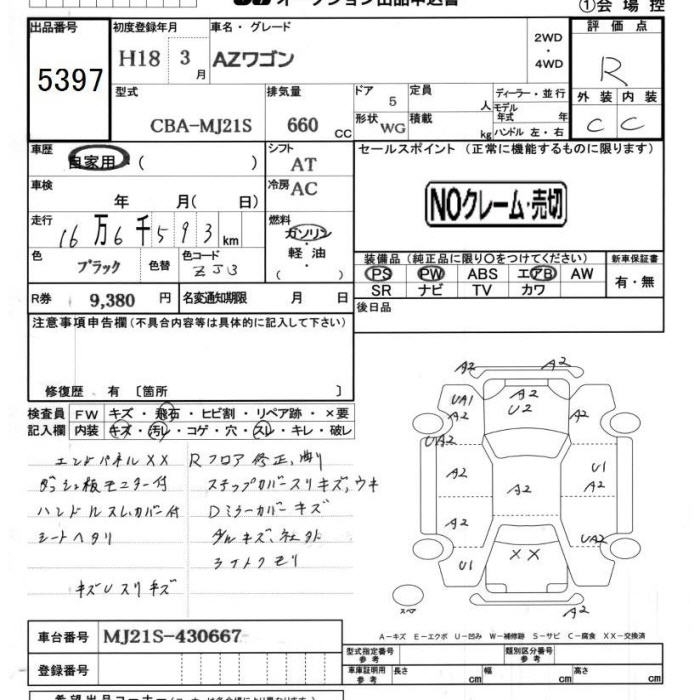 オークション出品申込書
①会場控
出品番号
5397
初度登録年月
H18 3月
車名・グレード
AZワゴン
2WD
・
4WD
評価点
R
外装 内装
C C
型式
CBA-MJ21S
排気量
660 CC
ドア 5
形状 WG
定員 人
積載 kg
ディーラー・並行
モデル年式 年
ハンドル 左・右
車歴
自家用・( )
シフト
AT
車検
年 月( 日)
冷房 AC
走行
16万6千593km
燃料
ガソリン
・
軽油
・
( )
色
ブラック
色替
色コード
ZJ3
R券 9,380円
名変通知期限 月 日
セールスポイント (正常に機能するものに限ります)
NOクレーム・売切
装備品 (純正品に限り○をつけてください)
PS PW ABS エアB AW
SR ナビ TV カワ
新車保証書
有・無
後日品
注意事項申告欄(不具合内容等は具体的に記入して下さい)
修復歴 有 〔箇所 〕
検査員
記入欄
FW キズ・飛石・ヒビ割・リペア跡・×要
内装 キズ・汚レ・コゲ・穴・スレ・キレ・破レ
エンドパネルXX
Rフロア修正、曲り
ダッシュ板モニター付
ステップカバースリキズ、ウキ
ハンドルスレ、カバー付
Dミラーカバーキズ
シートヘタリ
ライトクモリ
キズUスリキズ
A2 A2
UA1 A2 A2 U2 A2
U1A2
A2 A2 U1 A2
A2 UA2
U1 XX
A2
スペア
A－キズ E－エクボ U－凹み W－補修跡 S－サビ C－腐食 XX－交換済
車台番号 MJ21S-430667
登録番号
型式指定番号
参考
類別区分番号
参考
車庫証明用
参考
長さ cm
幅 cm
高さ cm
希望出品コーナー